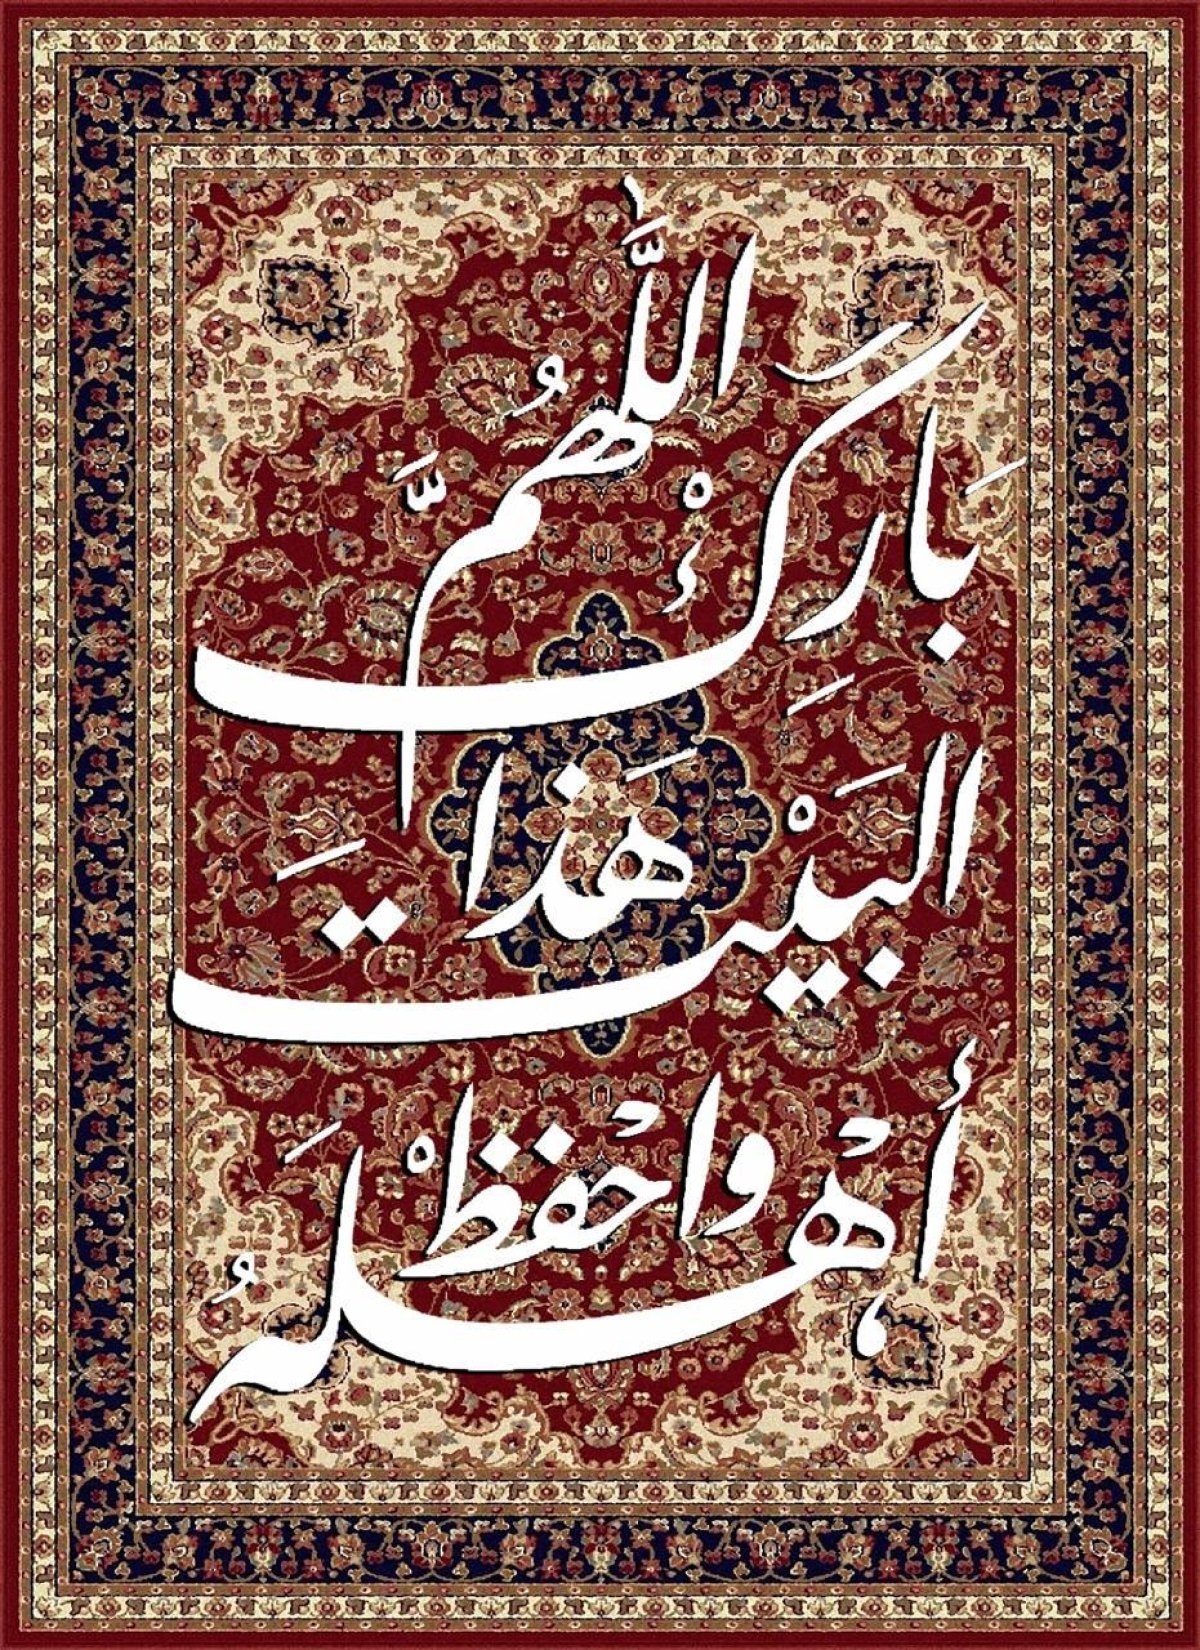 اللَّهُمَّ بَارِكْ
هَذَا البَيْت
وَاحْفَظْ أَهْلَهُ